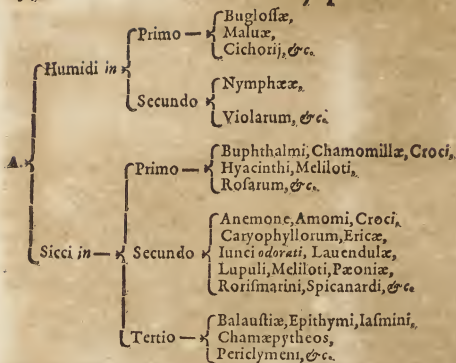 Primo
Buglossæ,
Maluæ,
Cichorij, &c.
Humidi in
Secundo
Nymphææ,
Violarum, &c.
A.
Primo
Buphthalmi, Chamomillæ, Croci,
Hyacinthi, Meliloti,
Rosarum, &c.
Sicci in
Secundo
Anemone, Amomi, Croci,
Caryophyllorum, Ericæ,
Iunci odorati, Lauendulæ,
Lupuli, Meliloti, Pæoniæ,
Rorismarini, Spicanardi, &c.
Tertio
Balaustiæ, Epithymi, Iasmini,
Chamæpytheos,
Periclymeni, &c.